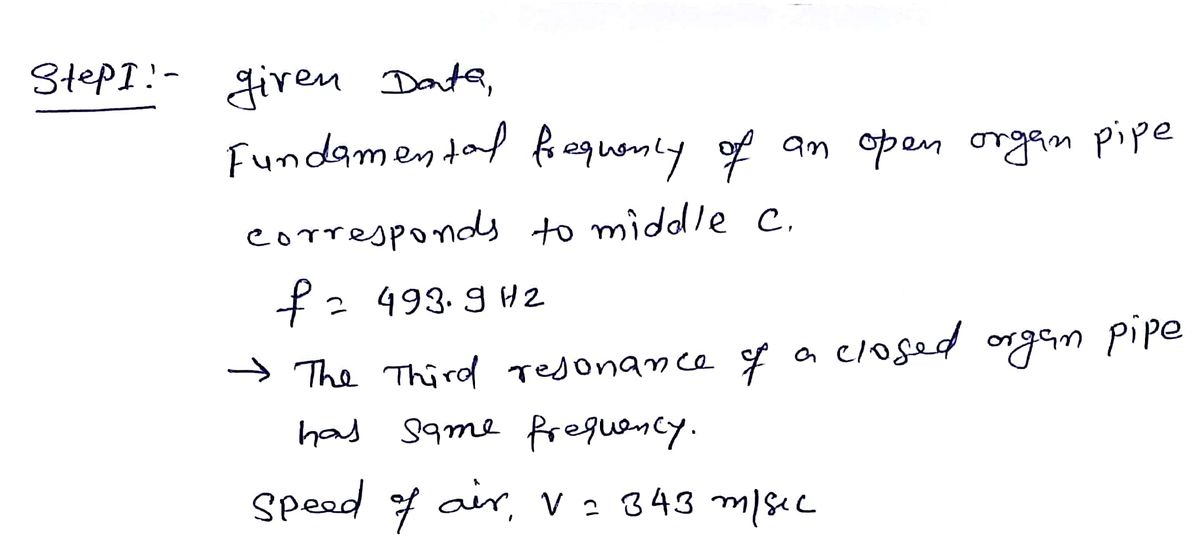 StepI:- given Data,
Fundamental frequency of an open organ pipe
corresponds to middle c.
f = 493.9 HZ
→ The Third resonance of a closed organ pipe
has same frequency.
Speed of air, V = 343 m/sec